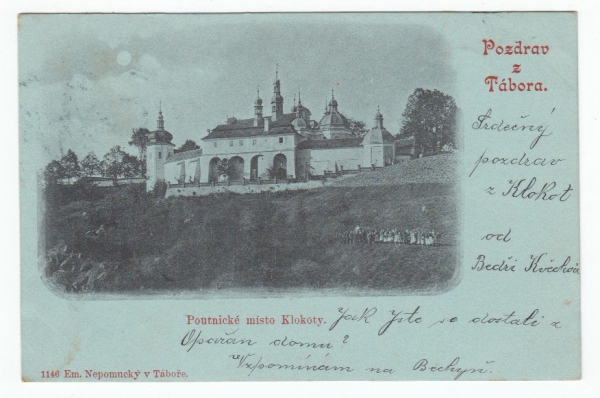 Pozdrav
z
Tábora.
Srdečný
pozdrav
z Klokot
od
Poutnické místo Klokoty.
Jak jste se dostali z
Opařan domů?
Vzpomínám na Bechyň.
1146 Em. Nepomucký v Táboře.